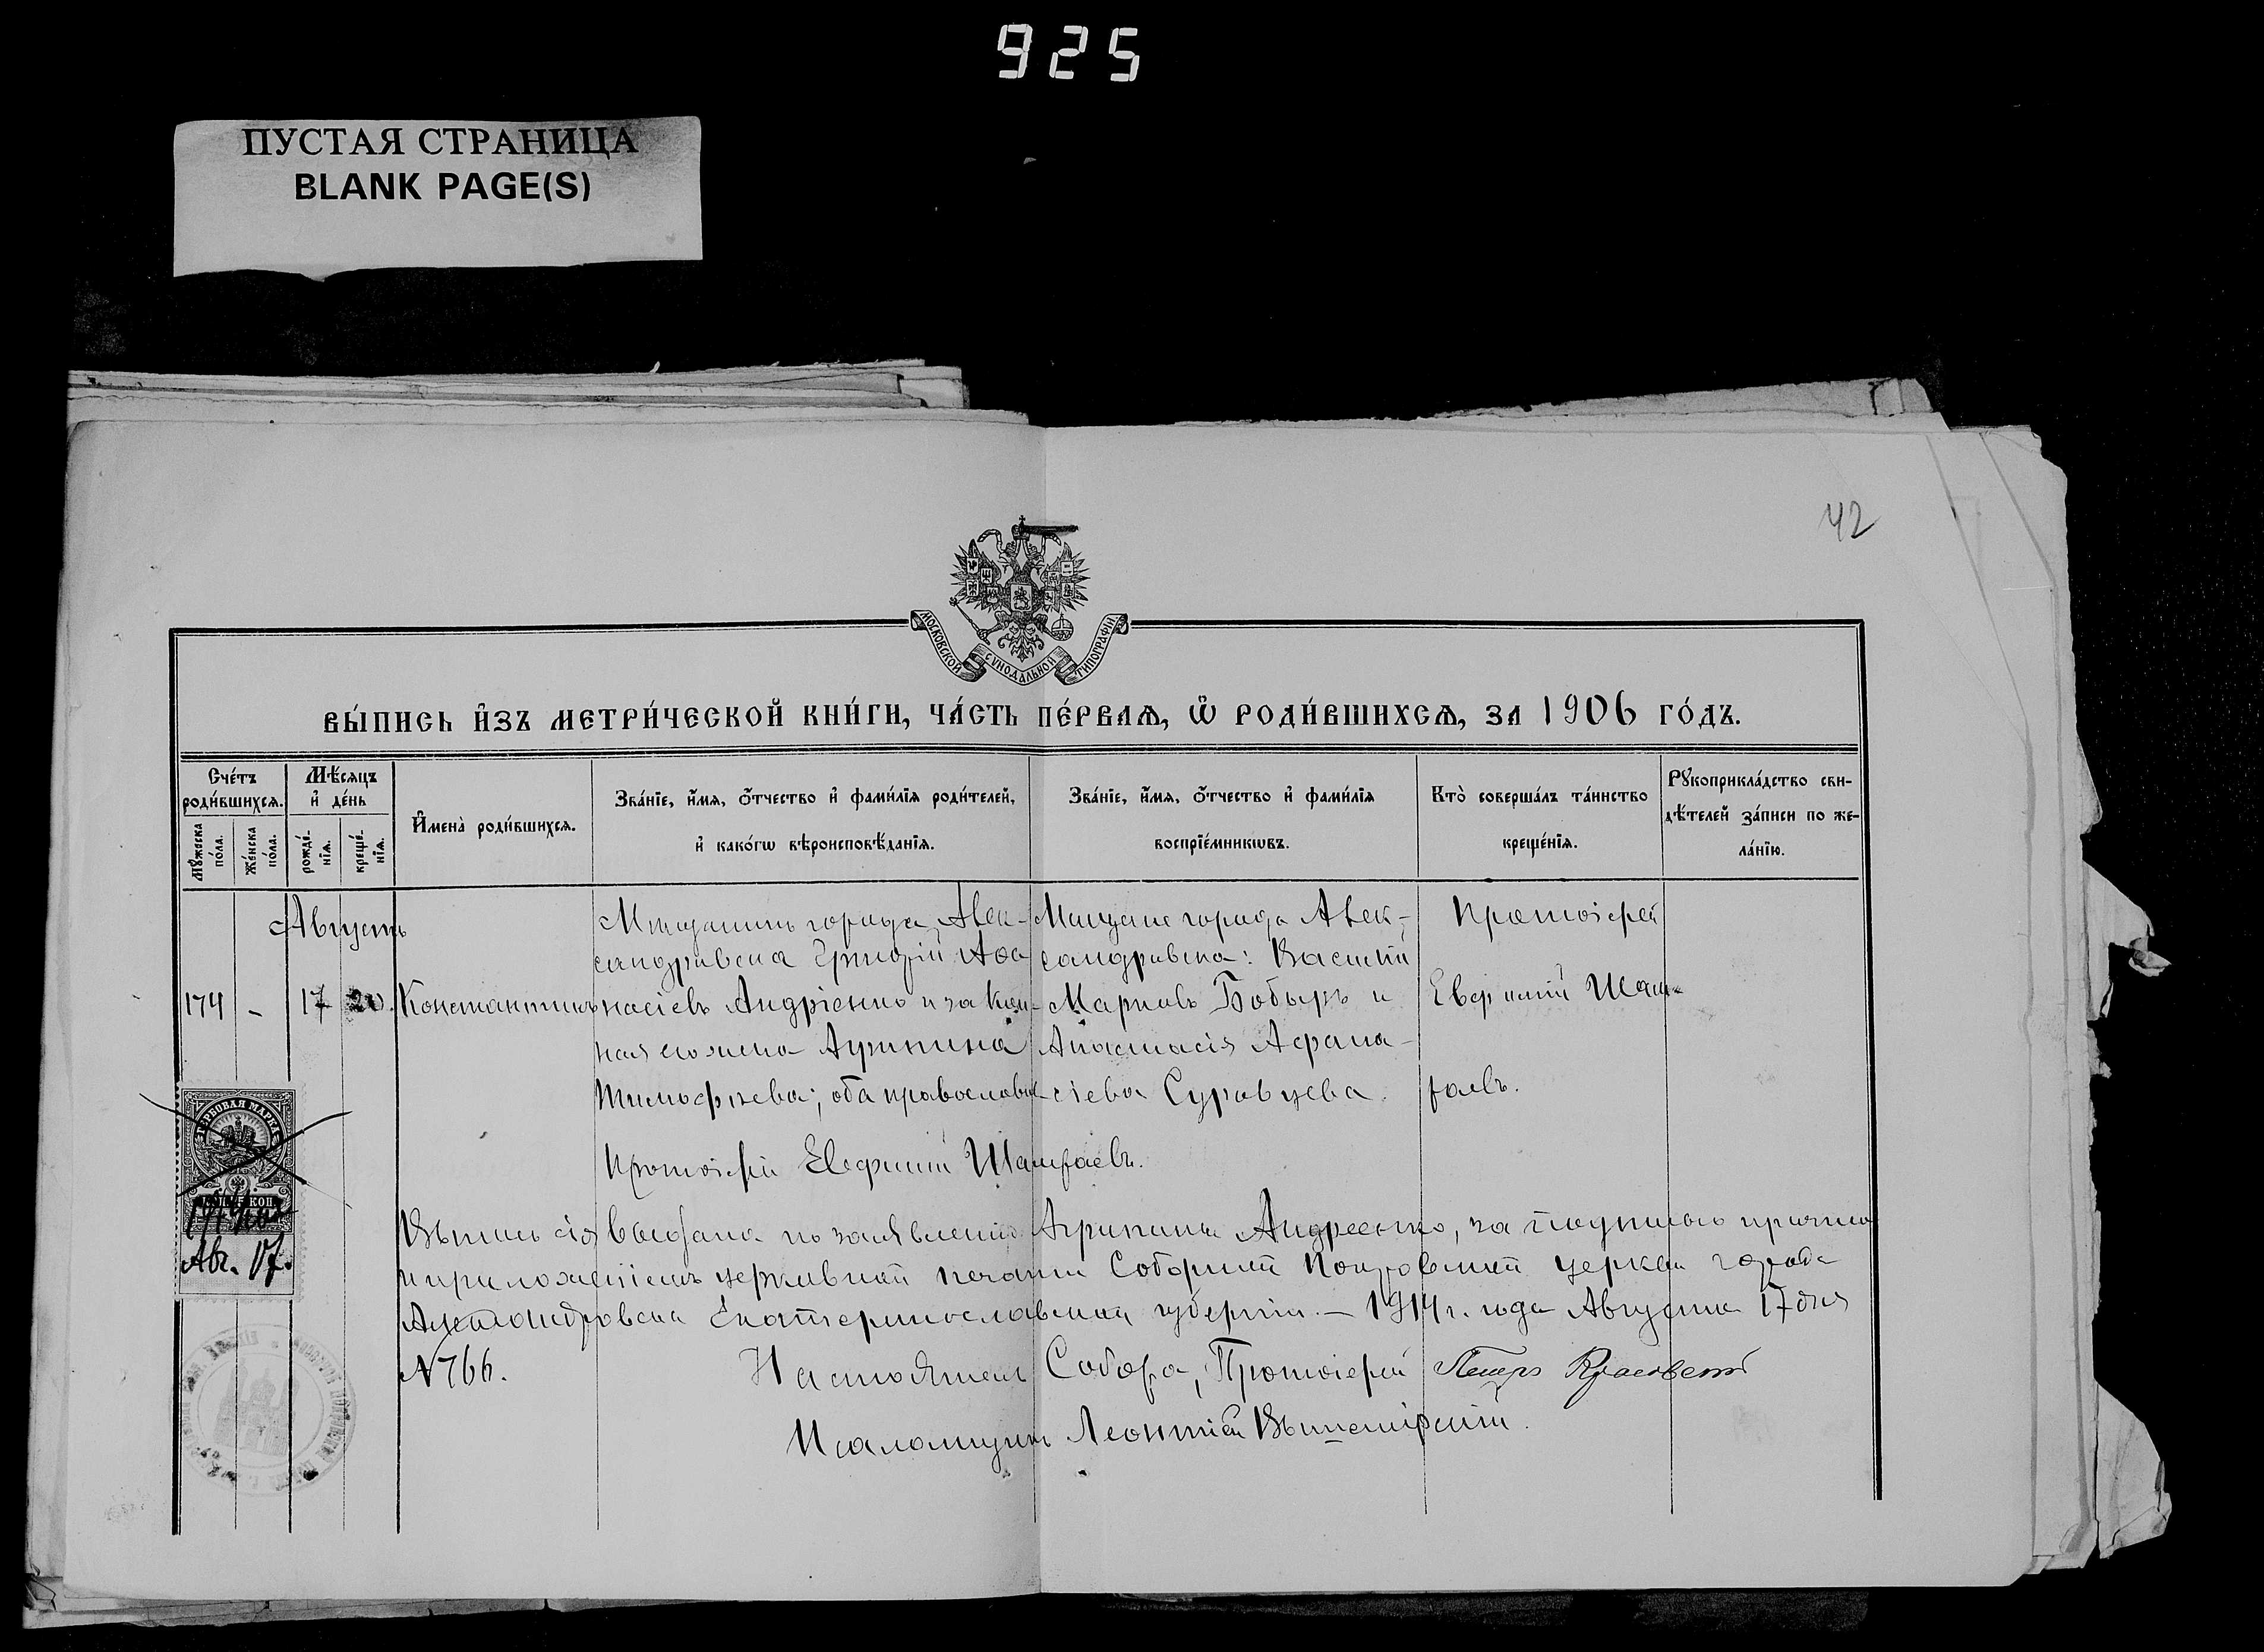 925
ПУСТАЯ СТРАНИЦА
BLANK PAGE(S)
42
МОСКОВСКОЙ СѴНОДАЛЬНОЙ ТИПОГРАФІИ
ВЫ́ПИСЬ И҆ЗЪ МЕТРИ́ЧЕСКОЙ КНИ́ГИ, ЧА́СТЬ ПЕ́РВАѦ, Ѽ РОДИ́ВШИХСѦ, ЗА 1906 ГО́ДЪ.
Сче́тъ роди́вшихсѧ.
Мꙋ́жеска по́ла.
Же́нска по́ла.
Мѣ́сяцъ и҆ де́нь
рожде́нїѧ.
креще́нїѧ.
И҆мена̀ роди́вшихсѧ.
Зва́нїе, и҆́мѧ, ѻ҆́тчество и҆ фами́лїѧ роди́телей,
и҆ како́гѡ вѣроисповѣ́данїѧ.
Зва́нїе, и҆́мѧ, ѻ҆́тчество и҆ фами́лїѧ
воспрїе́мникѡвъ.
Кто̀ соверша́лъ та́инство
креще́нїѧ.
Рꙋкоприкла́дство сви-
дѣ́телей за́писи по же-
ла́нїю.
Августъ
174 - 17 20. Константинъ
Мѣщанинъ города Алек-
сандровска Григорій Афа
насіевъ Андріенко и закон-
ная его жена Агрипина
Тимофѣева; оба православн
Мѣщане города Алек-
сандровска: Василій
Марковъ Бобырь и
Анастасія Афана-
сіева Суровцева.
Протоіерей
Евфимій Шам-
раевъ.
Протоіерей Евфимій Шамраевъ.
ГЕРБОВАЯ МАРКА
КОП
Авг. 17.
Выпись сія выдана по заявленію Агрипины Андреенко, за подписью причта
и приложеніемъ церковной печати Соборной Покровской церкви города
Александровска Екатеринославской губерніи. — 1914 г. года Августа 17 дня
№ 766.
Настоятель Собора, Протоіерей Петръ
Псаломщикъ Леонтій